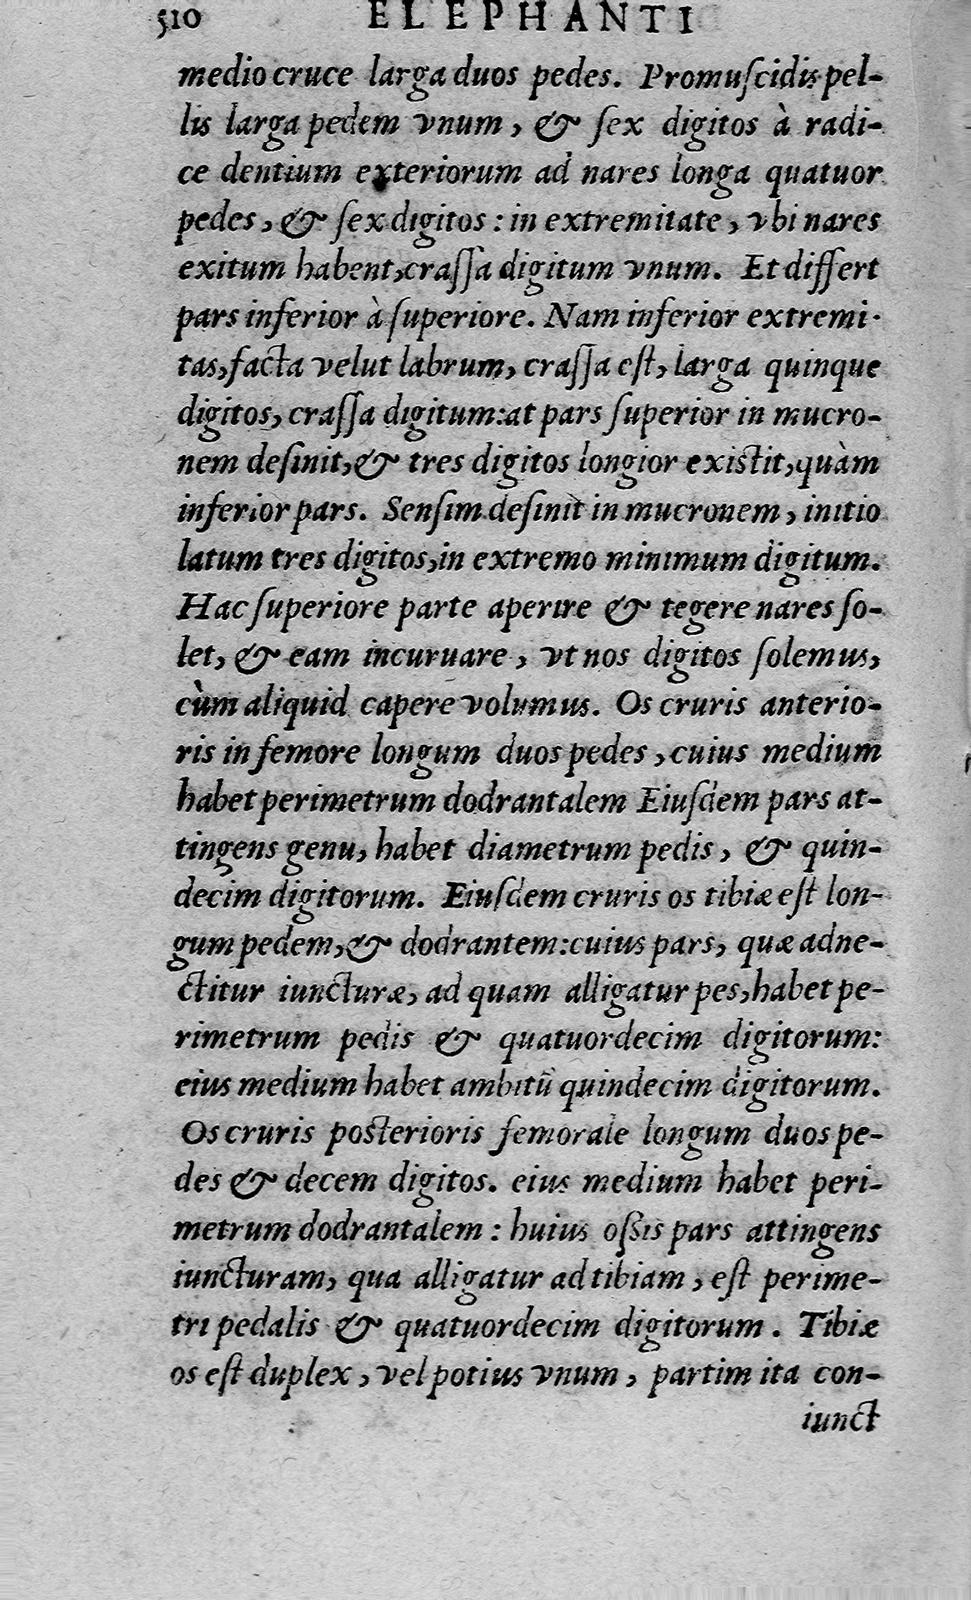 510 ELEPHANTI
medio cruce larga duos pedes. Promuſcidis pel-
lis larga pedem vnum, & ſex digitos à radi-
ce dentium exteriorum ad nares longa quatuor
pedes, & ſex digitos: in extremitate, vbi nares
exitum habent, craſſa digitum vnum. Et differt
pars inferior à ſuperiore. Nam inferior extremi-
tas, facta velut labrum, craſſa eſt, larga quinque
digitos, craſſa digitum: at pars ſuperior in mucro-
nem deſinit, & tres digitos longior existit, quàm
inferior pars. Senſim deſinit in mucronem, initio
latum tres digitos, in extremo minimum digitum.
Hac ſuperiore parte aperire & tegere nares ſo-
let, & eam incuruare, vt nos digitos ſolemus,
cùm aliquid capere volumus. Os cruris anterio-
ris in femore longum duos pedes, cuius medium
habet perimetrum dodrantalem Eiuſdem pars at-
tingens genu, habet diametrum pedis, & quin-
decim digitorum. Eiuſdem cruris os tibiæ eſt lon-
gum pedem, & dodrantem: cuius pars, quæ adne-
ctitur iuncturæ, ad quam alligatur pes, habet pe-
rimetrum pedis & quatuordecim digitorum:
eius medium habet ambitū quindecim digitorum.
Os cruris posterioris femorale longum duos pe-
des & decem digitos. eius medium habet peri-
metrum dodrantalem: huius oſsis pars attingens
iuncturam, qua alligatur ad tibiam, eſt perime-
tri pedalis & quatuordecim digitorum. Tibiæ
os eſt duplex, vel potius vnum, partim ita con-
iunct